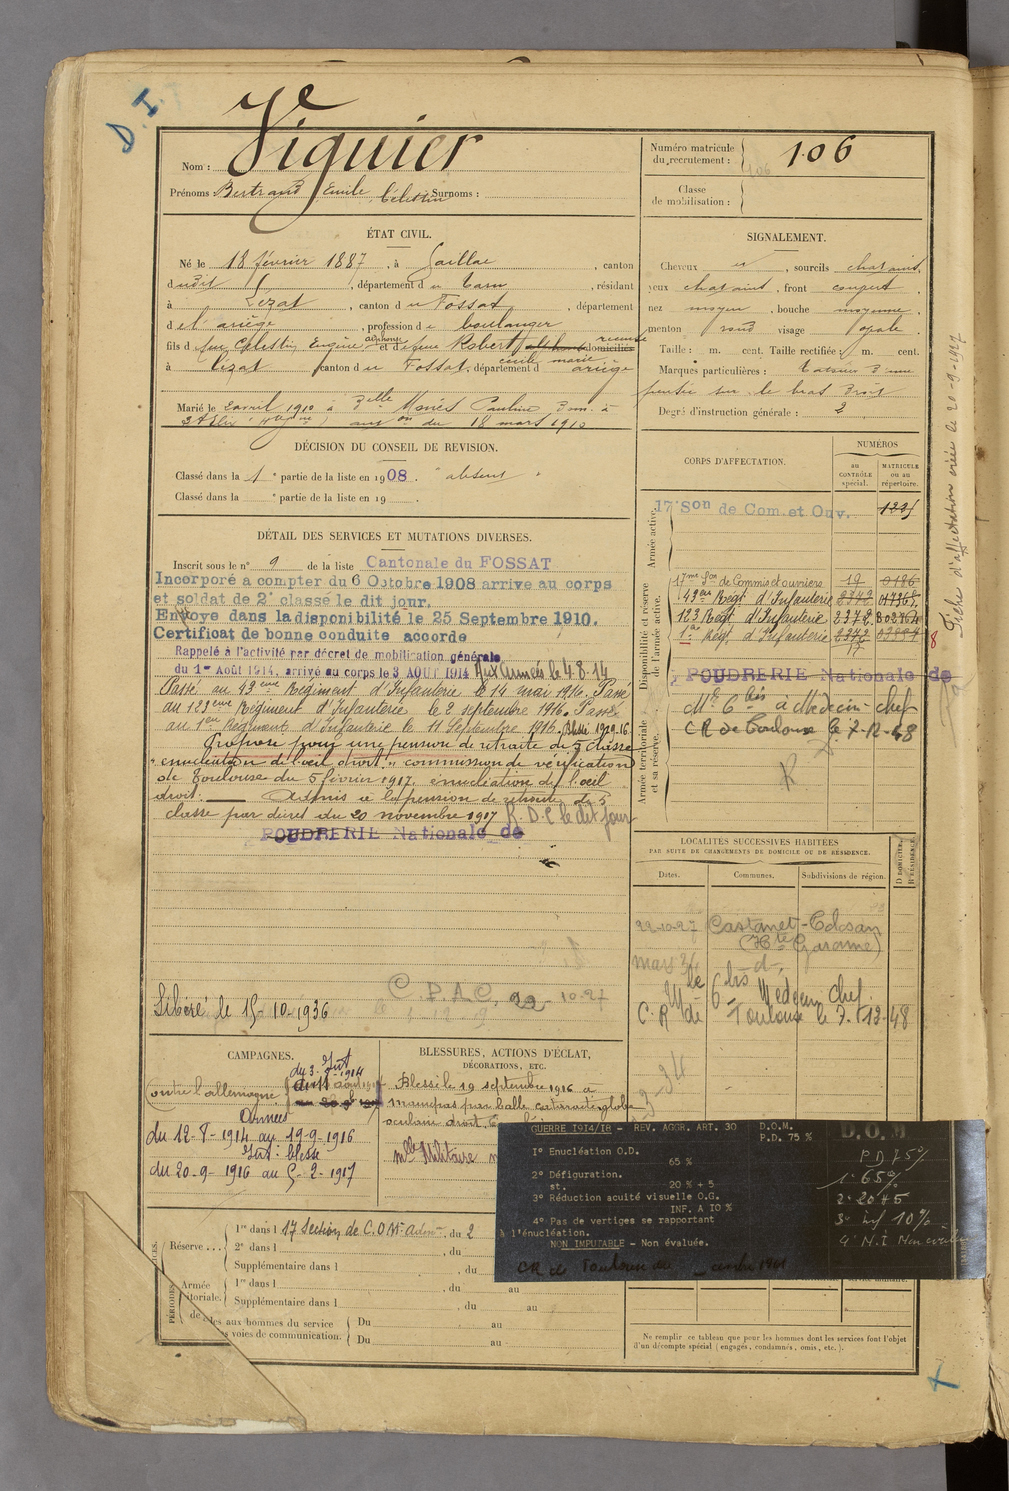 D. I.
Nom : Viguier
Prénoms : Bertrand Emile Célestin Surnoms :
Numéro matricule du recrutement : 106
Classe de mobilisation :
ÉTAT CIVIL.
Né le 18 février 1887, à Gaillac, canton
dudit, département du Tarn, résidant
à Lézat, canton du Fossat, département
de l'ariège, profession de boulanger
fils de feu Célestin Eugène alphonse et de feue Robert cécile marie domiciliés
à Lezat canton du Fossat, département d ariège
Marié le 2 avril 1910 à Delle Moriès Pauline dom. à
auton du 18 mars 1910
DÉCISION DU CONSEIL DE REVISION.
Classé dans la 1e partie de la liste en 1908. "absent"
Classé dans la e partie de la liste en 19 .
DÉTAIL DES SERVICES ET MUTATIONS DIVERSES.
Inscrit sous le n° 9 de la liste Cantonale du FOSSAT
Incorporé a compter du 6 Octobre 1908 arrive au corps
et soldat de 2e classe le dit jour.
Envoye dans la disponibilité le 25 Septembre 1910.
Certificat de bonne conduite accorde
Rappelé à l'activité par décret de mobilisation générale
du 1er Août 1914, arrivé au corps le 3 AOUT 1914 Aux Armées le 4.8.14
Passé au 43eme Régiment d'Infanterie le 14 mai 1916. Passé
au 123eme Régiment d'Infanterie le 2 septembre 1916. Passé
au 1er Régiment d'Infanterie le 11 Septembre 1916. Blessé 19.9.16
Proposé pour une pension de retraite de 5 classe
"énucléation de l'œil droit." commission de vérification
de Toulouse du 5 février 1917. énucléation de l'œil
droit. Admis à la pension de retraite de 5
classe par décret du 20 novembre 1917 R.D.C le dit jour
POUDRERIE Nationale de
C.P.A.C. 22-10-27
Libéré le 15-10-1936
SIGNALEMENT.
Cheveux et, sourcils chatains,
yeux chatains, front couvert,
nez moyen, bouche moyenne,
menton rond visage ovale.
Taille : m. cent. Taille rectifiée : m. cent.
Marques particulières : tatoué d'une
pensée sur le bras droit
Degré d'instruction générale : 3
CORPS D'AFFECTATION.
NUMÉROS
au CONTRÔLE spécial.
MATRICULE ou au répertoire.
Armée active.
17e Son de Com. et Ouv. 1225
Disponibilité et réserve de l'armée active.
17me Son de Commis et ouvriers 19 0186
49eme Régt d'Infanterie 2342
123 Régt d'Infanterie 2372
1er Régt d'Infanterie 2342
17
POUDRERIE Nationale de
Armée territoriale et sa réserve.
Mle 6 bis à Médecin-chef
CR de Toulouse le 7-12-48
R
Fiche d'affectation créée le 20-9-1927
LOCALITÉS SUCCESSIVES HABITÉES
PAR SUITE DE CHANGEMENTS DE DOMICILE OU DE RÉSIDENCE.
Dates. Communes. Subdivisions de région. D DOMICILE. R RÉSIDENCE.
22-10-27 Castanet-Tolosan
(Hte Garonne)
mars 34 -d-
Mle 6 bis Médecin chef
C.R de Toulouse le 7-12-48
CAMPAGNES.
Contre l'allemagne
du 3 Août 1914
Armées
du 12-8-1914 au 19-9-1916
Int: blessé
du 20-9-1916 au 5-2-1917
BLESSURES, ACTIONS D'ÉCLAT,
DÉCORATIONS, ETC.
Blessé le 19 septembre 1916 à
maurepas par balle cataracte globe
oculaire droit.
Mlle Militaire
GUERRE 1914/18 - REV. AGGR. ART. 30 D.O.M.
P.D. 75 %
1° Enucléation O.D.
65 %
2° Défiguration.
st. 20 % + 5
3° Réduction acuité visuelle O.G.
INF. A 10 %
4° Pas de vertiges se rapportant
à l'énucléation.
NON IMPUTABLE - Non évaluée.
D.O.M
P.D. 75%
1° 65%
2° 20+5
3° inf 10%
4° N.I Non évaluée
CR de Toulouse du
Réserve ... 1er dans l 17 Section de C.O.M. Adon, du 2
2e dans l , du
Supplémentaire dans l , du
Armée territoriale. 1er dans l , du au
Supplémentaire dans l , du au
les aux hommes du service Du au
es voies de communication. Du au
Ne remplir ce tableau que pour les hommes dont les services font l'objet
d'un décompte spécial (engagés, condamnés, omis, etc.).